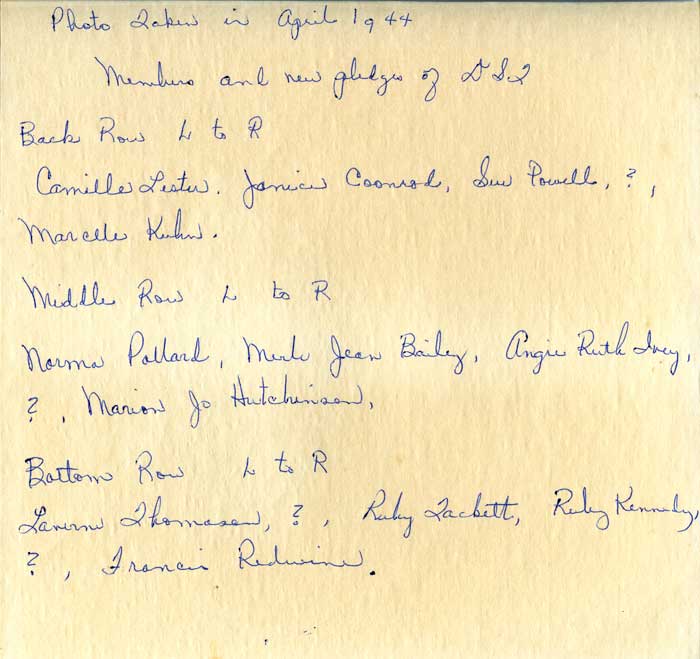 Photo Taken in April 1944
Members and new pledges of D S I
Back Row L to R
Camille Lester. Janice Coonrod, Sue Powell, ?,
Marcelle Kuhn.
Middle Row L to R
Norma Pollard, Merle Jean Bailey, Angie Ruth Ivey,
?, Marion Jo Hutchinson,
Bottom Row L to R
Laverne Thomason, ?, Ruby Tackett, Ruby Kennedy,
?, Francis Redwine.